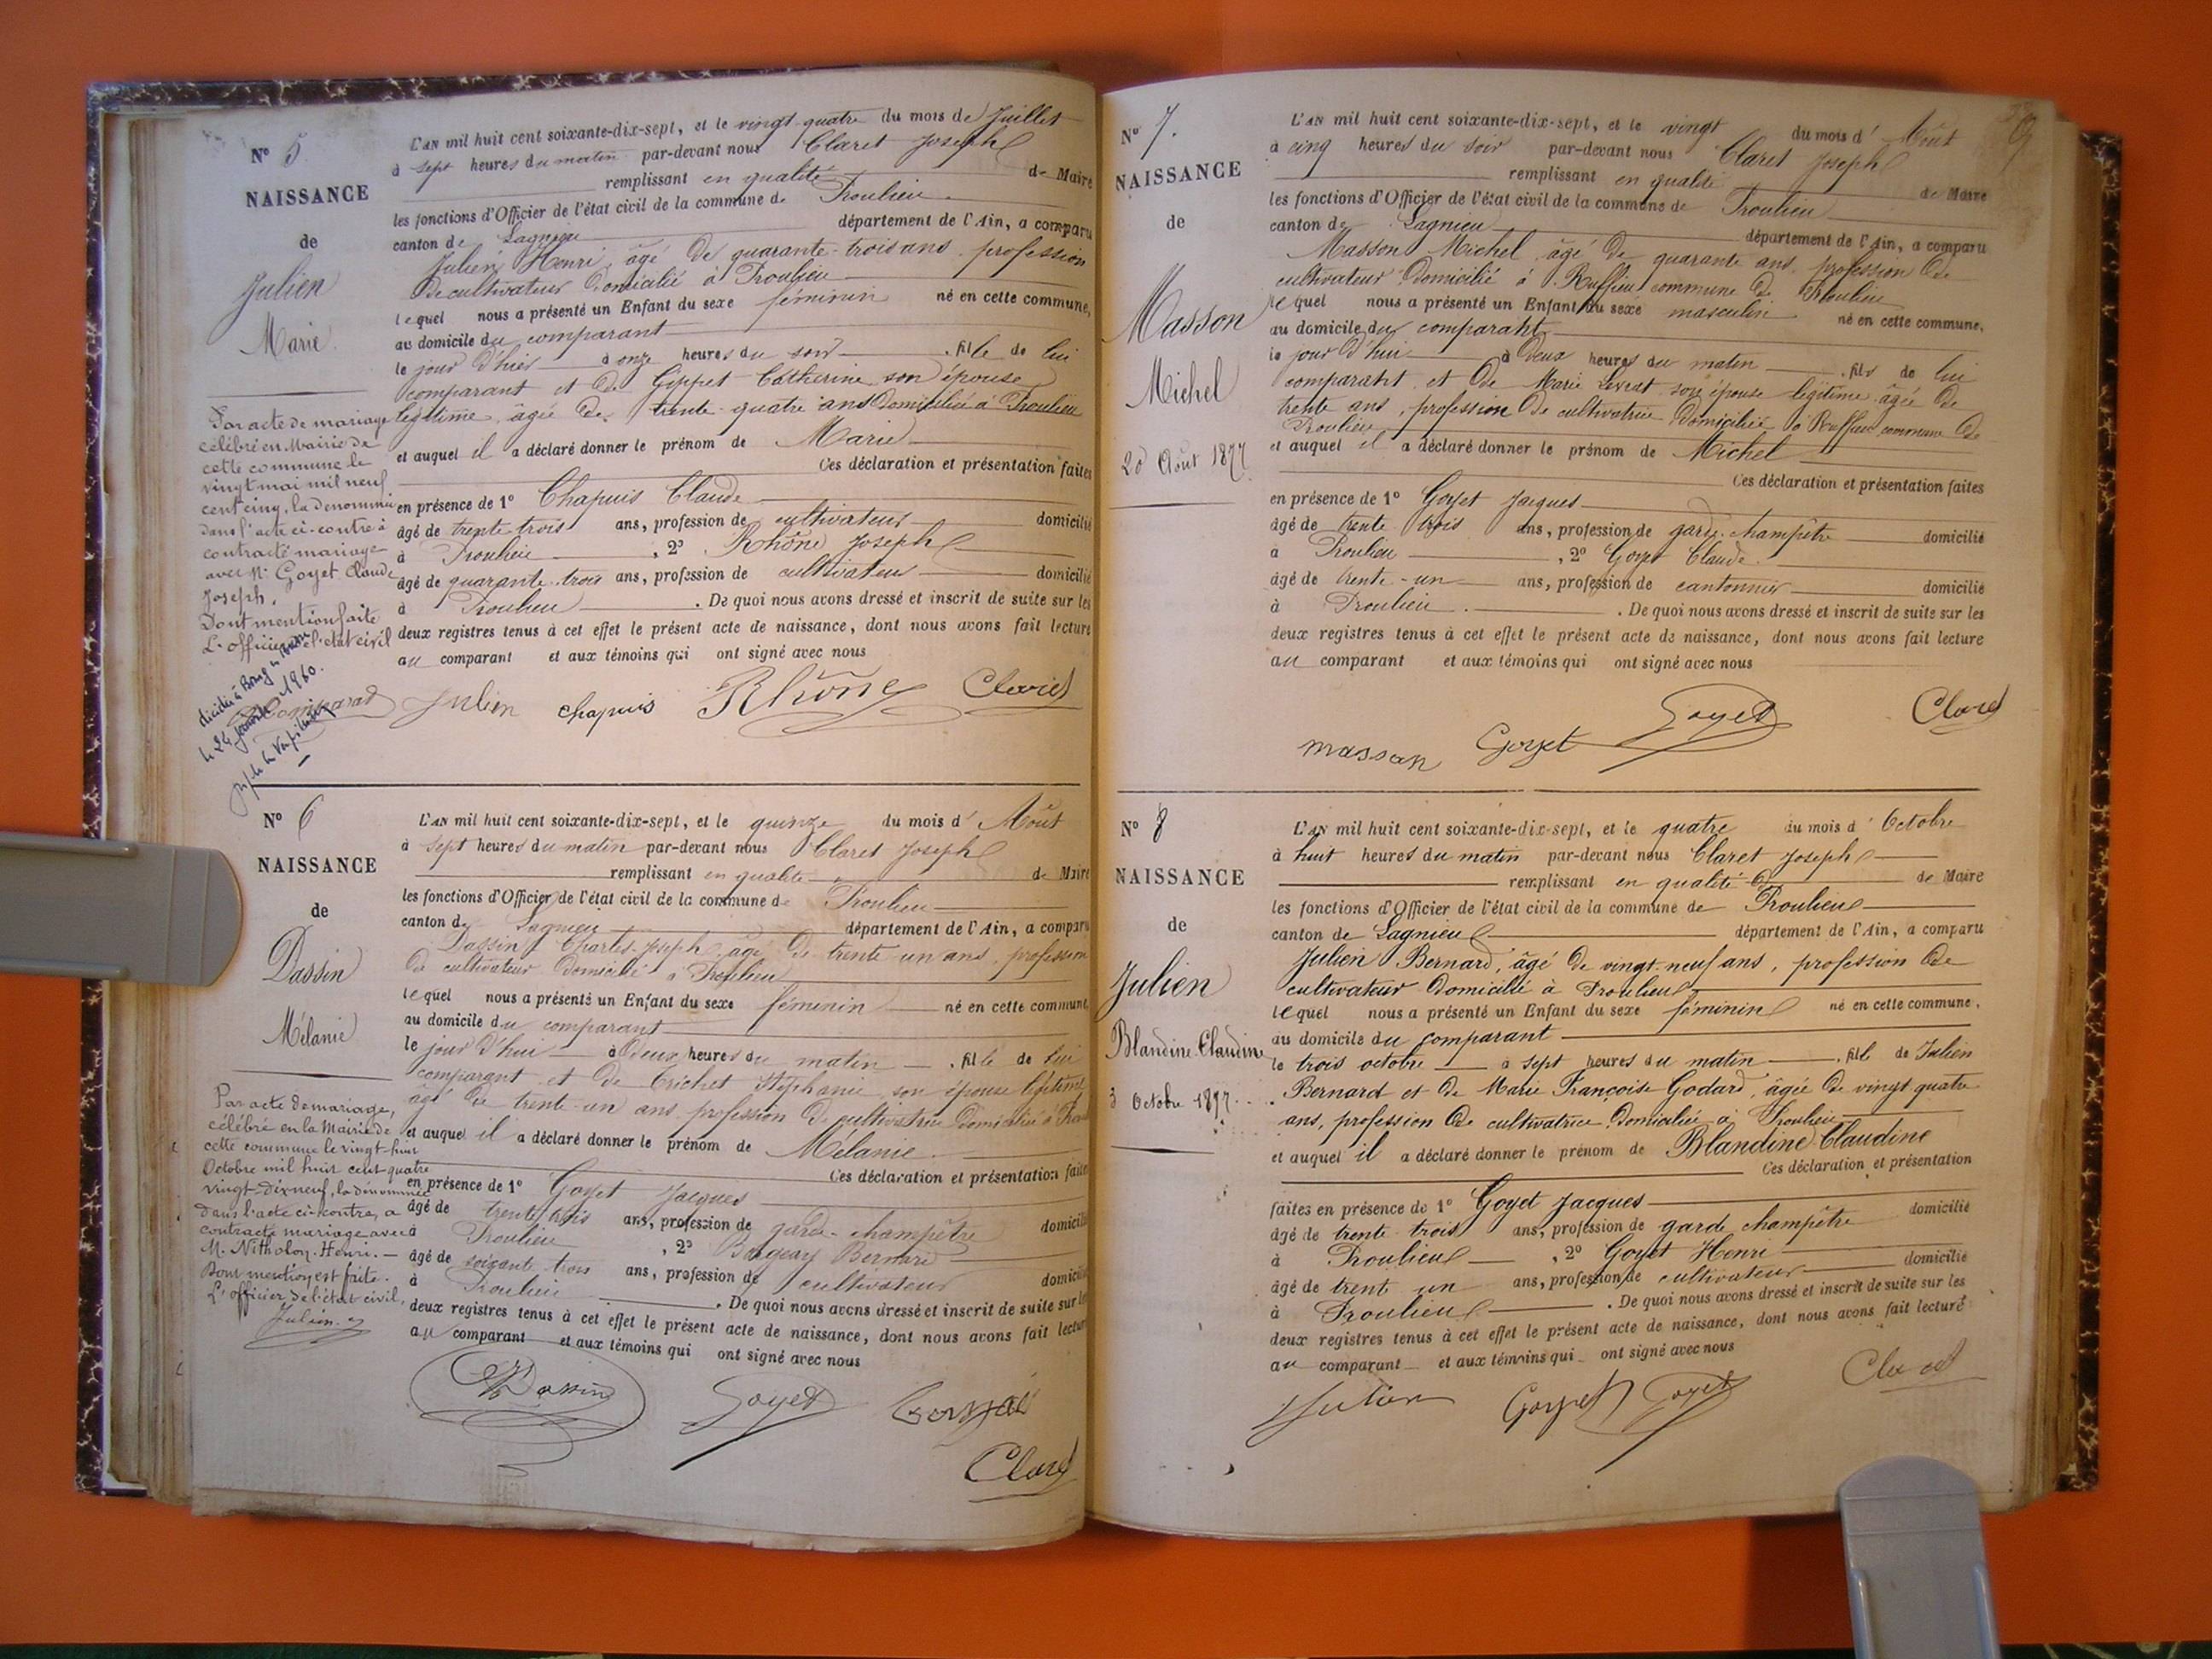 N° 5
NAISSANCE
de
Julien
Marie
L'AN mil huit cent soixante-dix-sept, et le vingt-quatre du mois de Juillet
à sept heures du matin par-devant nous Claret Joseph
remplissant en qualité de Maire
les fonctions d'Officier de l'état civil de la commune de Proulieu
canton de Lagnieu département de l'Ain, a comparu
Julien Henri, âgé de quarante-trois ans, profession
de cultivateur domicilié à Proulieu
lequel nous a présenté un Enfant du sexe féminin né en cette commune,
au domicile du comparant
le jour d'hier à onze heures du soir, fille de lui
comparant et de Gippet Catherine son épouse
légitime, âgée de trente-quatre ans domiciliée à Proulieu
et auquel il a déclaré donner le prénom de Marie
Ces déclaration et présentation faites
en présence de 1° Chapuis Claude
âgé de trente-trois ans, profession de cultivateur domicilié
à Proulieu, 2° Rhône Joseph
âgé de quarante-trois ans, profession de cultivateur domicilié
à Proulieu. De quoi nous avons dressé et inscrit de suite sur les
deux registres tenus à cet effet le présent acte de naissance, dont nous avons fait lecture
au comparant et aux témoins qui ont signé avec nous
Julien chapuis Rhône Claret
Par acte de mariage
célébré en Mairie de
cette commune le
vingt mai mil neuf
cent cinq, la dénommée
dans l'acte ci-contre a
contracté mariage
avec Mr Goyet Claude
Joseph.
Dont mention faite
L'officier de l'état civil
décédée à Bourg
le 24 janvier 1960.
N° 6
NAISSANCE
de
Dassin
Mélanie
L'AN mil huit cent soixante-dix-sept, et le quinze du mois d'Août
à sept heures du matin par-devant nous Claret Joseph
remplissant en qualité de Maire
les fonctions d'Officier de l'état civil de la commune de Proulieu
canton de Lagnieu département de l'Ain, a comparu
Dassin Charles-Joseph, âgé de trente-un ans, profession
de cultivateur domicilié à Proulieu
lequel nous a présenté un Enfant du sexe féminin né en cette commune,
au domicile du comparant
le jour d'hui à deux heures du matin, fille de lui
comparant et de Crichet Stéphanie son épouse légitime
âgé de trente-un ans profession de cultivatrice domiciliée à
et auquel il a déclaré donner le prénom de Mélanie
Ces déclaration et présentation faites
en présence de 1° Goyet Jacques
âgé de trente trois ans, profession de garde-champêtre domicilié
à Proulieu, 2° Bernard
âgé de soixante trois ans, profession de cultivateur domicilié
à Proulieu. De quoi nous avons dressé et inscrit de suite sur les
deux registres tenus à cet effet le présent acte de naissance, dont nous avons fait lecture
au comparant et aux témoins qui ont signé avec nous
Dassin Goyet
Claret
Par acte de mariage,
célébré en la Mairie de
cette commune le vingt-huit
Octobre mil huit cent quatre
vingt-dix neuf, la dénommée
dans l'acte ci-contre, a
contracté mariage avec
M. Nitholoy Henri.
Dont mention est faite.
L'officier de l'état civil,
Julien
N° 7.
NAISSANCE
de
Masson
Michel
20 Août 1877
L'AN mil huit cent soixante-dix-sept, et le vingt du mois d'Août
à cinq heures du soir par-devant nous Claret Joseph
remplissant en qualité de Maire
les fonctions d'Officier de l'état civil de la commune de Proulieu
canton de Lagnieu département de l'Ain, a comparu
Masson Michel, âgé de quarante ans, profession de
cultivateur domicilié à Ruffieu commune de Proulieu
lequel nous a présenté un Enfant du sexe masculin né en cette commune,
au domicile du comparant
le jour d'hui à deux heures du matin, fils de lui
comparant et de Marie Levrat son épouse légitime âgée de
trente ans, profession de cultivatrice domiciliée à Ruffieu commune de
Proulieu
et auquel il a déclaré donner le prénom de Michel
Ces déclaration et présentation faites
en présence de 1° Goyet Jacques
âgé de trente trois ans, profession de garde-champêtre domicilié
à Proulieu, 2° Goyet Claude
âgé de trente-un ans, profession de cantonnier domicilié
à Proulieu. De quoi nous avons dressé et inscrit de suite sur les
deux registres tenus à cet effet le présent acte de naissance, dont nous avons fait lecture
au comparant et aux témoins qui ont signé avec nous
masson Goyet Goyet Claret
N° 8
NAISSANCE
de
Julien
Blandine Claudine
3 Octobre 1877
L'AN mil huit cent soixante-dix-sept, et le quatre du mois d'Octobre
à huit heures du matin par-devant nous Claret Joseph
remplissant en qualité de Maire
les fonctions d'Officier de l'état civil de la commune de Proulieu
canton de Lagnieu département de l'Ain, a comparu
Julien Bernard, âgé de vingt-neuf ans, profession de
cultivateur domicilié à Proulieu
lequel nous a présenté un Enfant du sexe féminin né en cette commune,
au domicile du comparant
le trois octobre à sept heures du matin, fille de Julien
Bernard et de Marie Françoise Godard, âgée de vingt quatre
ans, profession de cultivatrice, domiciliée à Proulieu
et auquel il a déclaré donner le prénom de Blandine Claudine
Ces déclaration et présentation
faites en présence de 1° Goyet Jacques
âgé de trente trois ans, profession de garde champêtre domicilié
à Proulieu, 2° Goyet Henri
âgé de trent un ans, profession de cultivateur domicilié
à Proulieu. De quoi nous avons dressé et inscrit de suite sur les
deux registres tenus à cet effet le présent acte de naissance, dont nous avons fait lecture
au comparant et aux témoins qui ont signé avec nous
Julien Goyet Goyet Claret